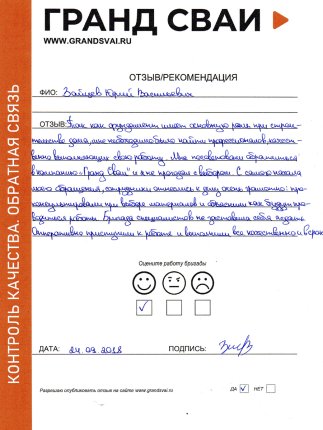 ГРАНД СВАИ
WWW.GRANDSVAI.RU
КОНТРОЛЬ КАЧЕСТВА. ОБРАТНАЯ СВЯЗЬ
ОТЗЫВ/РЕКОМЕНДАЦИЯ
ФИО: Зайцев Юрий Васильевич
ОТЗЫВ: Так как фундамент имеет основную роль при строи-
тельстве дома, мне необходимо было найти профессионалов, качест-
венно выполняющих свою работу. Мне посоветовали обратиться
в компанию "Гранд Сваи" и я не прогадал с выбором. С самого начала
моего обращения, сотрудники отнеслись к делу очень грамотно: про-
консультировали при выборе материалов и объяснили как будут про-
водиться работы. Бригада специалистов не заставила себя ждать.
Оперативно приступили к работе и выполнили все качественно и в срок
Оцените работу бригады
ДАТА: 24.09.2018 ПОДПИСЬ:
Разрешаю опубликовать отзыв на сайте www.grandsvai.ru ДА НЕТ